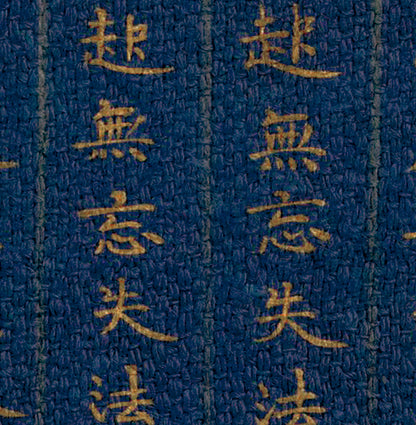 起無忘失法
起無忘失法